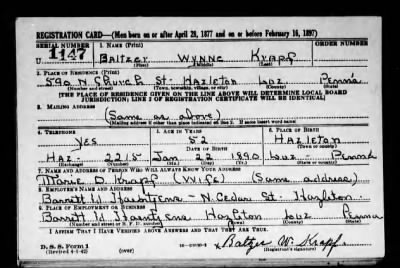 REGISTRATION CARD—(Men born on or after April 28, 1877 and on or before February 16, 1897)
SERIAL NUMBER 1. NAME (Print)
U 1147 Baltzer Wynne Krapf
(First) (Middle) (Last)
2. PLACE OF RESIDENCE (Print)
590 N Church St. Hazleton Luz Penna
(Number and street) (Town, township, village, or city) (County) (State)
[THE PLACE OF RESIDENCE GIVEN ON THE LINE ABOVE WILL DETERMINE LOCAL BOARD
JURISDICTION; LINE 2 OF REGISTRATION CERTIFICATE WILL BE IDENTICAL]
3. MAILING ADDRESS
(Same as above)
[Mailing address if other than place indicated on line 2. If same insert word same]
4. TELEPHONE 5. AGE IN YEARS 6. PLACE OF BIRTH
Yes 52 Hazleton
DATE OF BIRTH (Town or county)
Haz. 2215 Jan 22 1890 Luz Penna
(Exchange) (Number) (Mo.) (Day) (Yr.) (State or country)
7. NAME AND ADDRESS OF PERSON WHO WILL ALWAYS KNOW YOUR ADDRESS
Marie D. Krapf (Wife) (Same address)
8. EMPLOYER'S NAME AND ADDRESS
Barrett N. Cedar St. Hazleton
9. PLACE OF EMPLOYMENT OR BUSINESS
Barrett Hazleton Luz Penna
(Number and street or R. F. D. number) (Town) (County) (State)
I AFFIRM THAT I HAVE VERIFIED ABOVE ANSWERS AND THAT THEY ARE TRUE.
D. S. S. Form 1
(Revised 4-1-42) (over) Baltzer W. Krapf
(Registrant's signature)